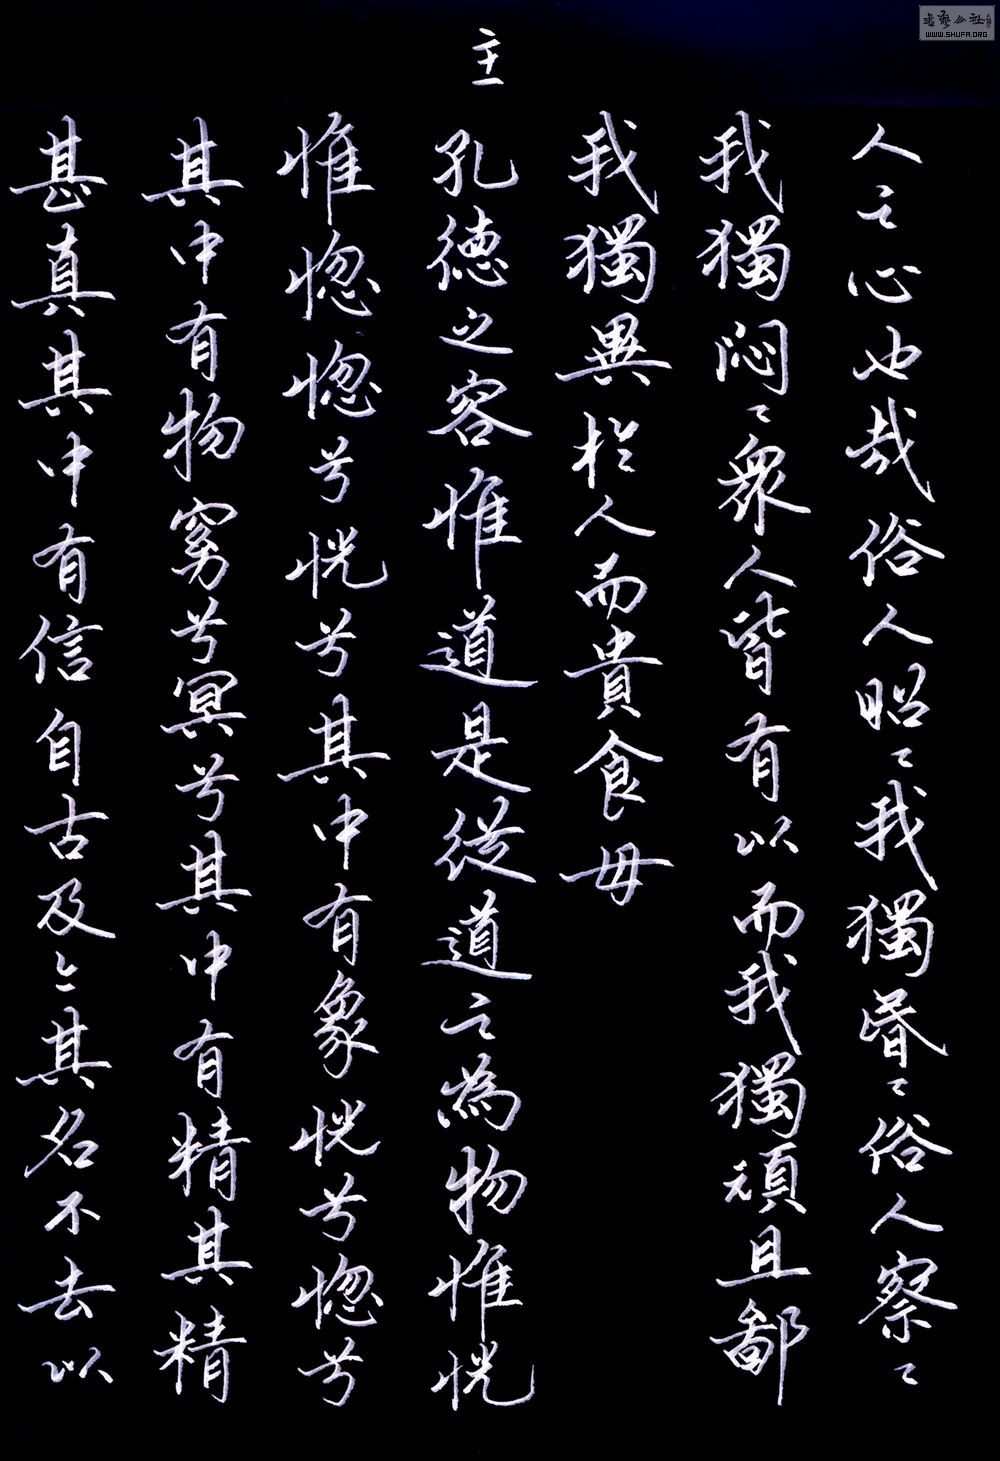 主
人之心也哉俗人昭〻我獨昬〻俗人察〻
我獨悶〻眾人皆有以而我獨頑且鄙
我獨異於人而貴食母
孔德之容惟道是從道之為物惟恍
惟惚惚兮恍兮其中有象恍兮惚兮
其中有物窈兮冥兮其中有精其精
甚真其中有信自古及今其名不去以
WWW.SHUFA.ORG